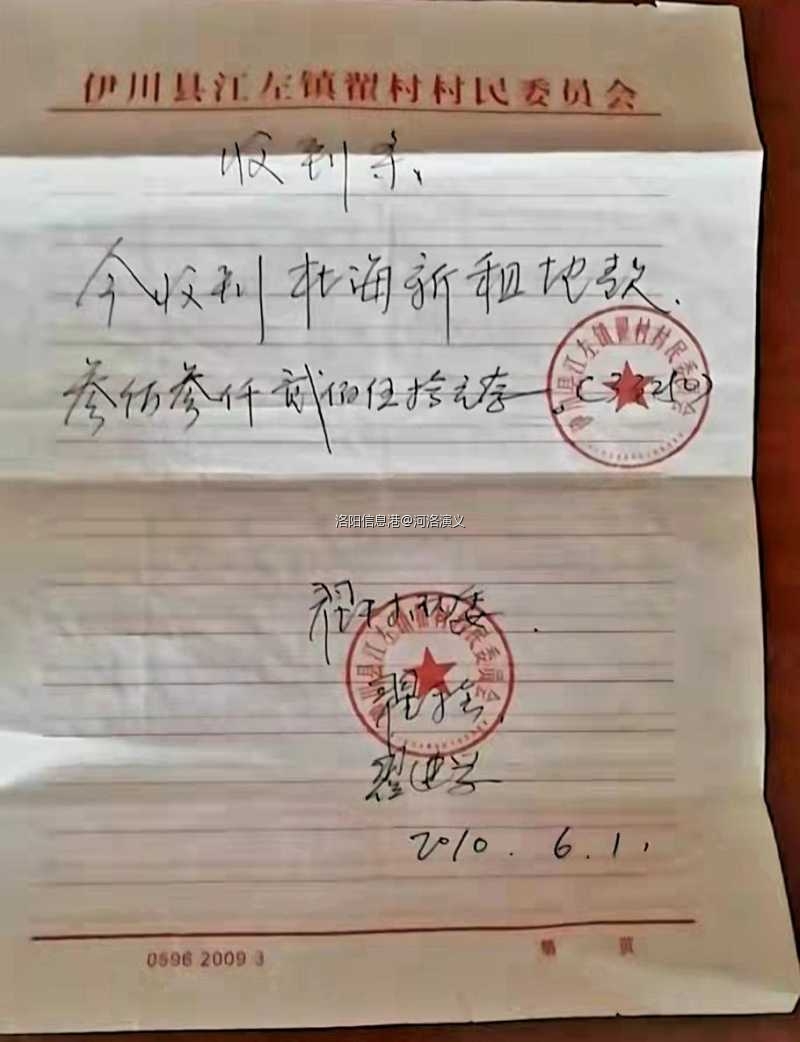 伊川县江左镇翟村村民委员会
收到条
今收到杜海新租地款.
叁万叁仟贰佰伍拾元整
伊川县江左镇翟村村民委员会
洛阳信息港@河洛演义
翟村村委
伊川县江左镇翟村村民委员会
2010.6.1.
0596 2009 3
第 页